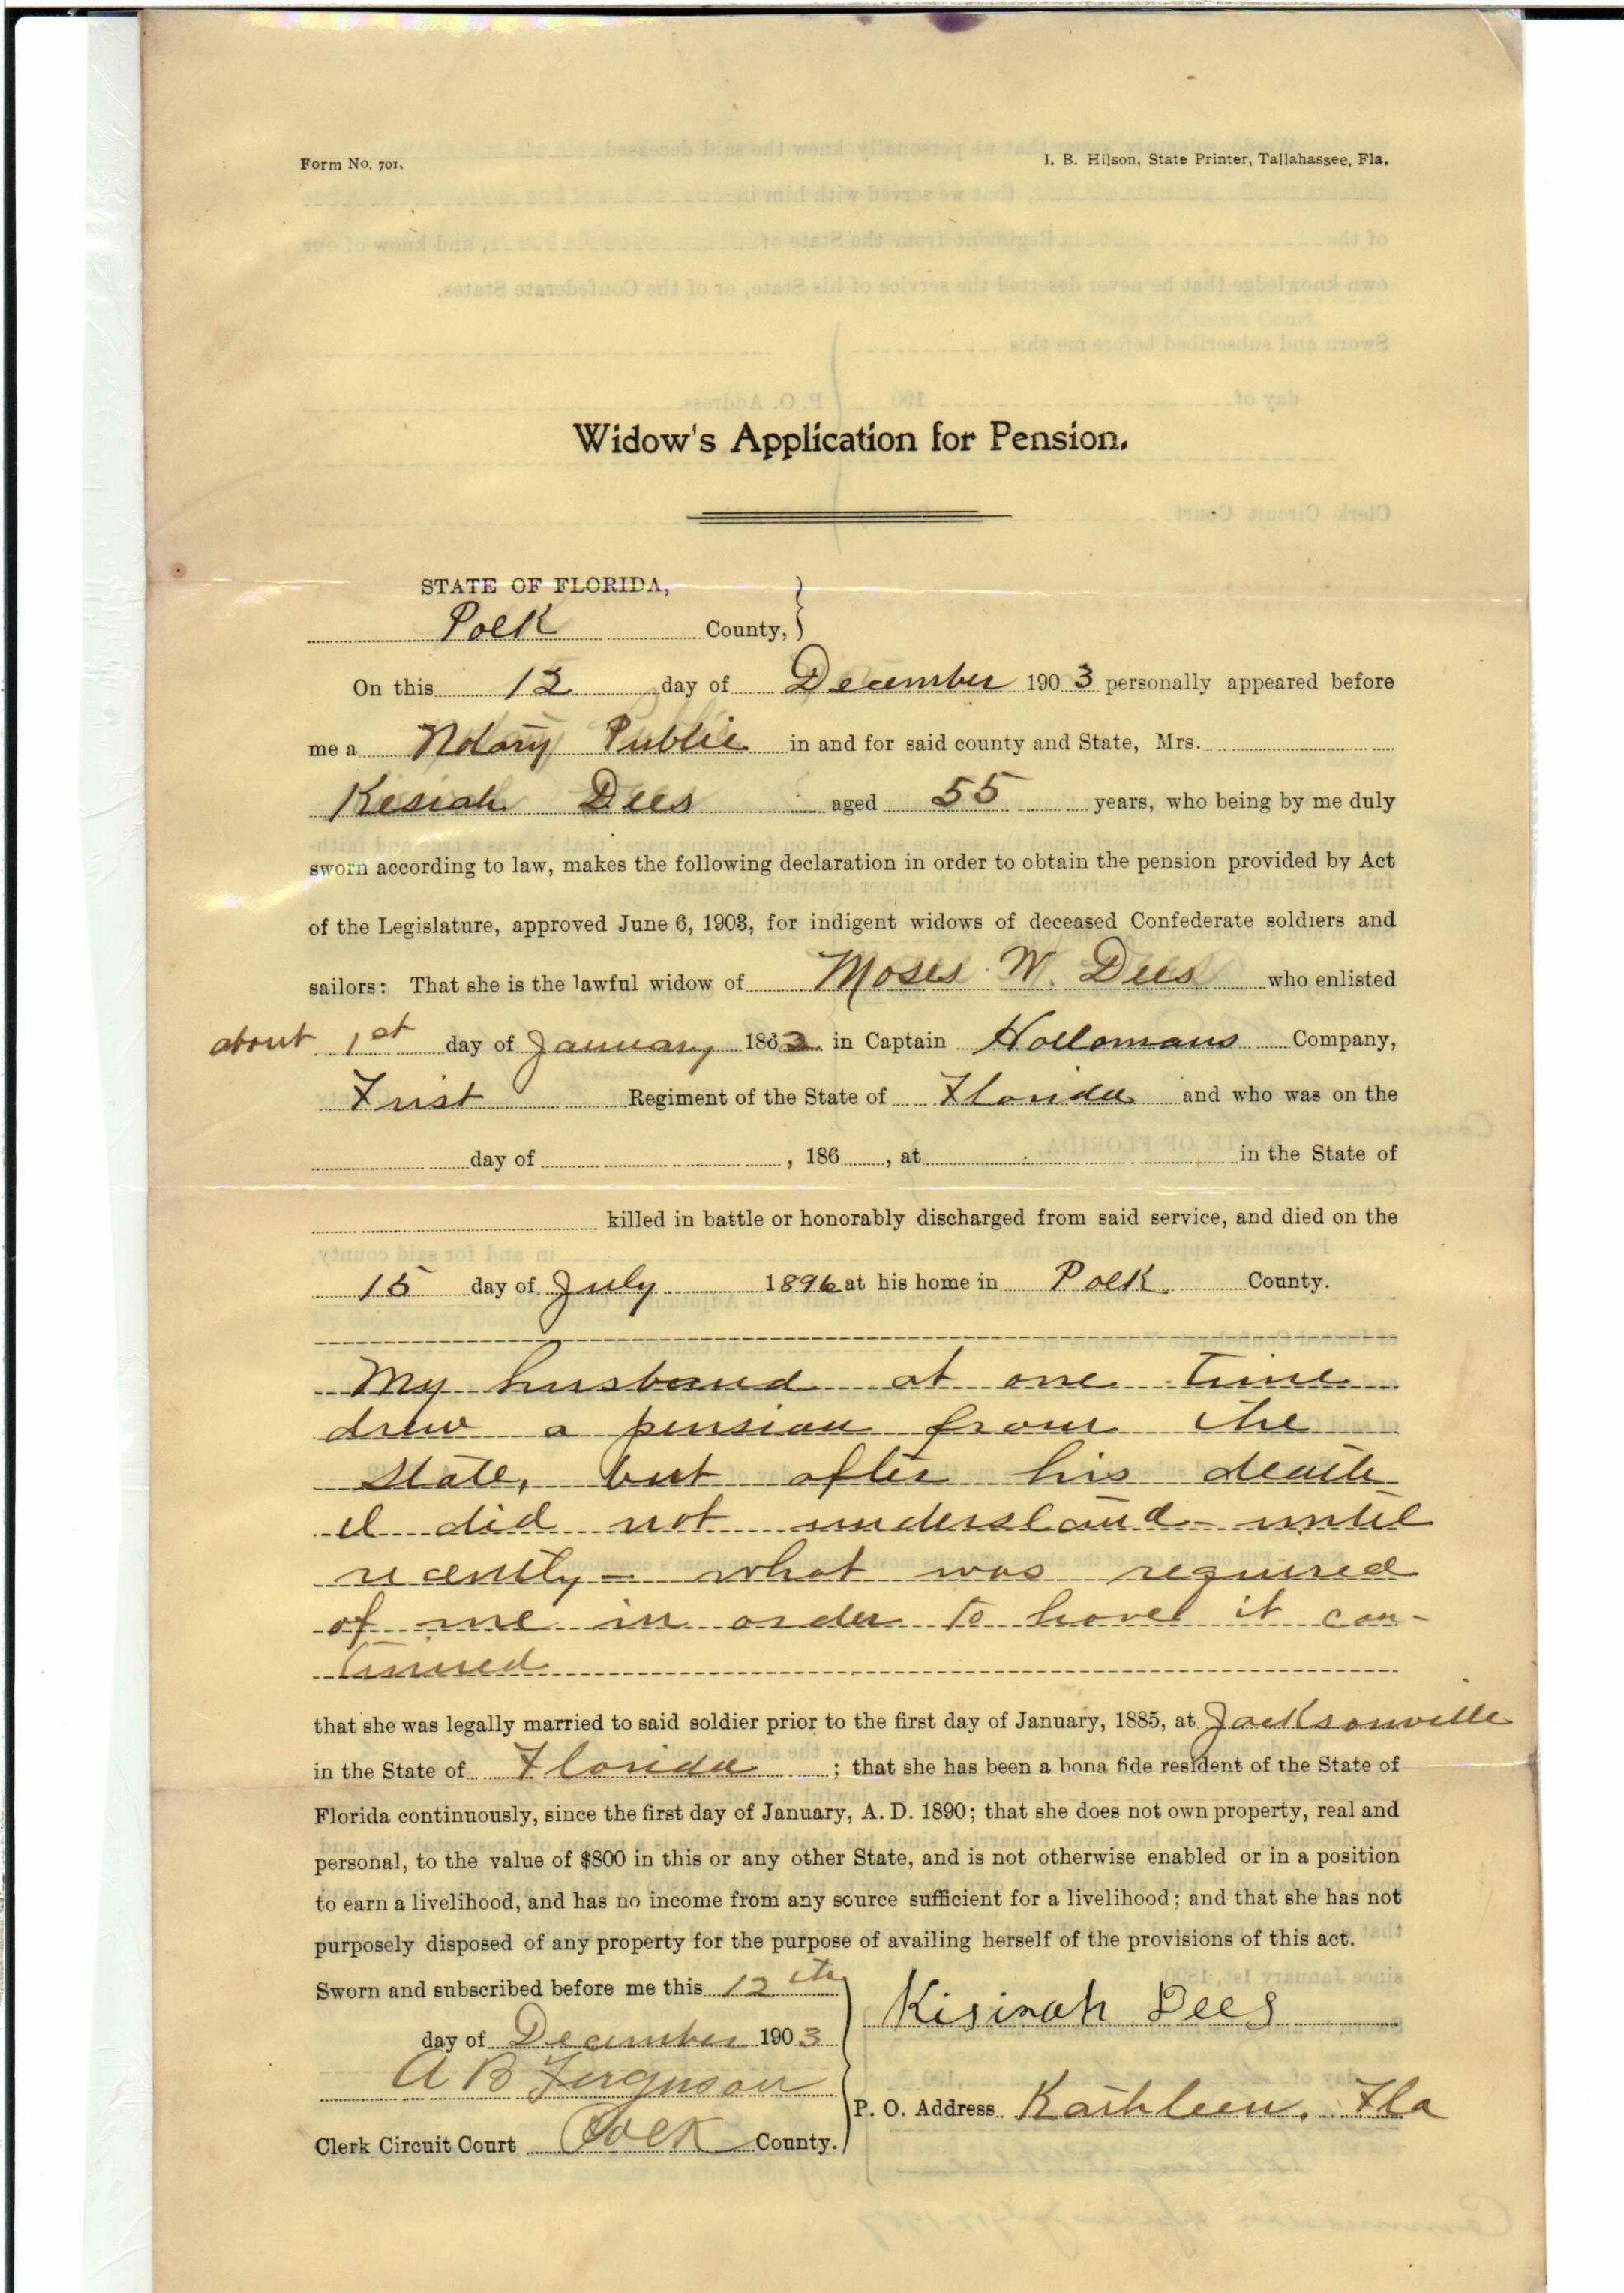 Form No. 701.
I. B. Hilson, State Printer, Tallahassee, Fla.
Widow's Application for Pension.
STATE OF FLORIDA,
Polk County,
On this 12 day of December 1903 personally appeared before
me a Notary Public in and for said county and State, Mrs.
Kesiah Dees aged 55 years, who being by me duly
sworn according to law, makes the following declaration in order to obtain the pension provided by Act
of the Legislature, approved June 6, 1903, for indigent widows of deceased Confederate soldiers and
sailors: That she is the lawful widow of Moses W. Dees who enlisted
about 1st day of January 1863 in Captain Hollomans Company,
Frist Regiment of the State of Florida and who was on the
day of , 186 , at in the State of
killed in battle or honorably discharged from said service, and died on the
15 day of July 1896 at his home in Polk County.
My husband at one time
drew a pension from the
State, but after his death
I did not understand - until
recently - what was required
of me in order to have it con-
tinued
that she was legally married to said soldier prior to the first day of January, 1885, at Jacksonville
in the State of Florida ; that she has been a bona fide resident of the State of
Florida continuously, since the first day of January, A. D. 1890; that she does not own property, real and
personal, to the value of $800 in this or any other State, and is not otherwise enabled or in a position
to earn a livelihood, and has no income from any source sufficient for a livelihood; and that she has not
purposely disposed of any property for the purpose of availing herself of the provisions of this act.
Sworn and subscribed before me this 12th
day of December 1903
A B Ferguson
Clerk Circuit Court Polk County.
Kisinah Dees
P. O. Address Kathleen, Fla